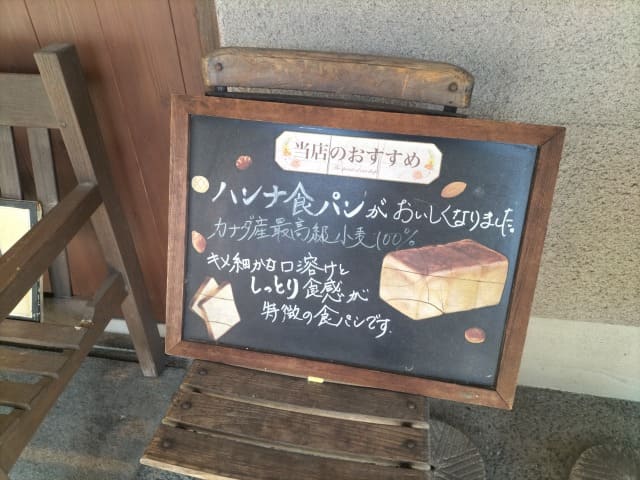 当店のおすすめ
ハンナ食パンがおいしくなりました。
カナダ産最高級小麦100%
キメ細かな口溶けと
しっとり食感が
特徴の食パンです.